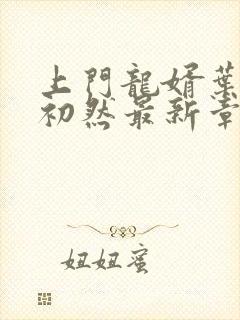 上門龍婿葉
初然最新章
妞妞蜜